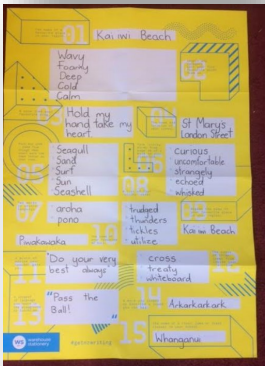 01 Kai iwi Beach
Wavy
Foamy
Deep
Cold
Calm
02
03 Hold my
hand take my
heart
04 St Mary's
London Street
05 Seagull
Sand
Surf
Sun
Seashell
06 curious
uncomfortable
strangely
echoed
whisked
07 aroha
pono
08
trudged
thunders
tickles
utilize
09 Kai iwi Beach
Piwakawaka
10
11 "Do your very
best always"
12 cross
treaty
whiteboard
13 "Pass the
Ball!"
14 Arkarkarkark
15 Whanganui
WS warehouse
stationery